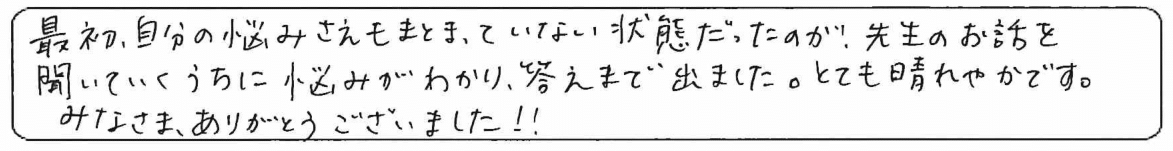 最初、自分の悩みさえもまとまっていない状態だったのが、先生のお話を
聞いていくうちに悩みがわかり、答えまで出ました。とても晴れやかです。
みなさま、ありがとうございました!!